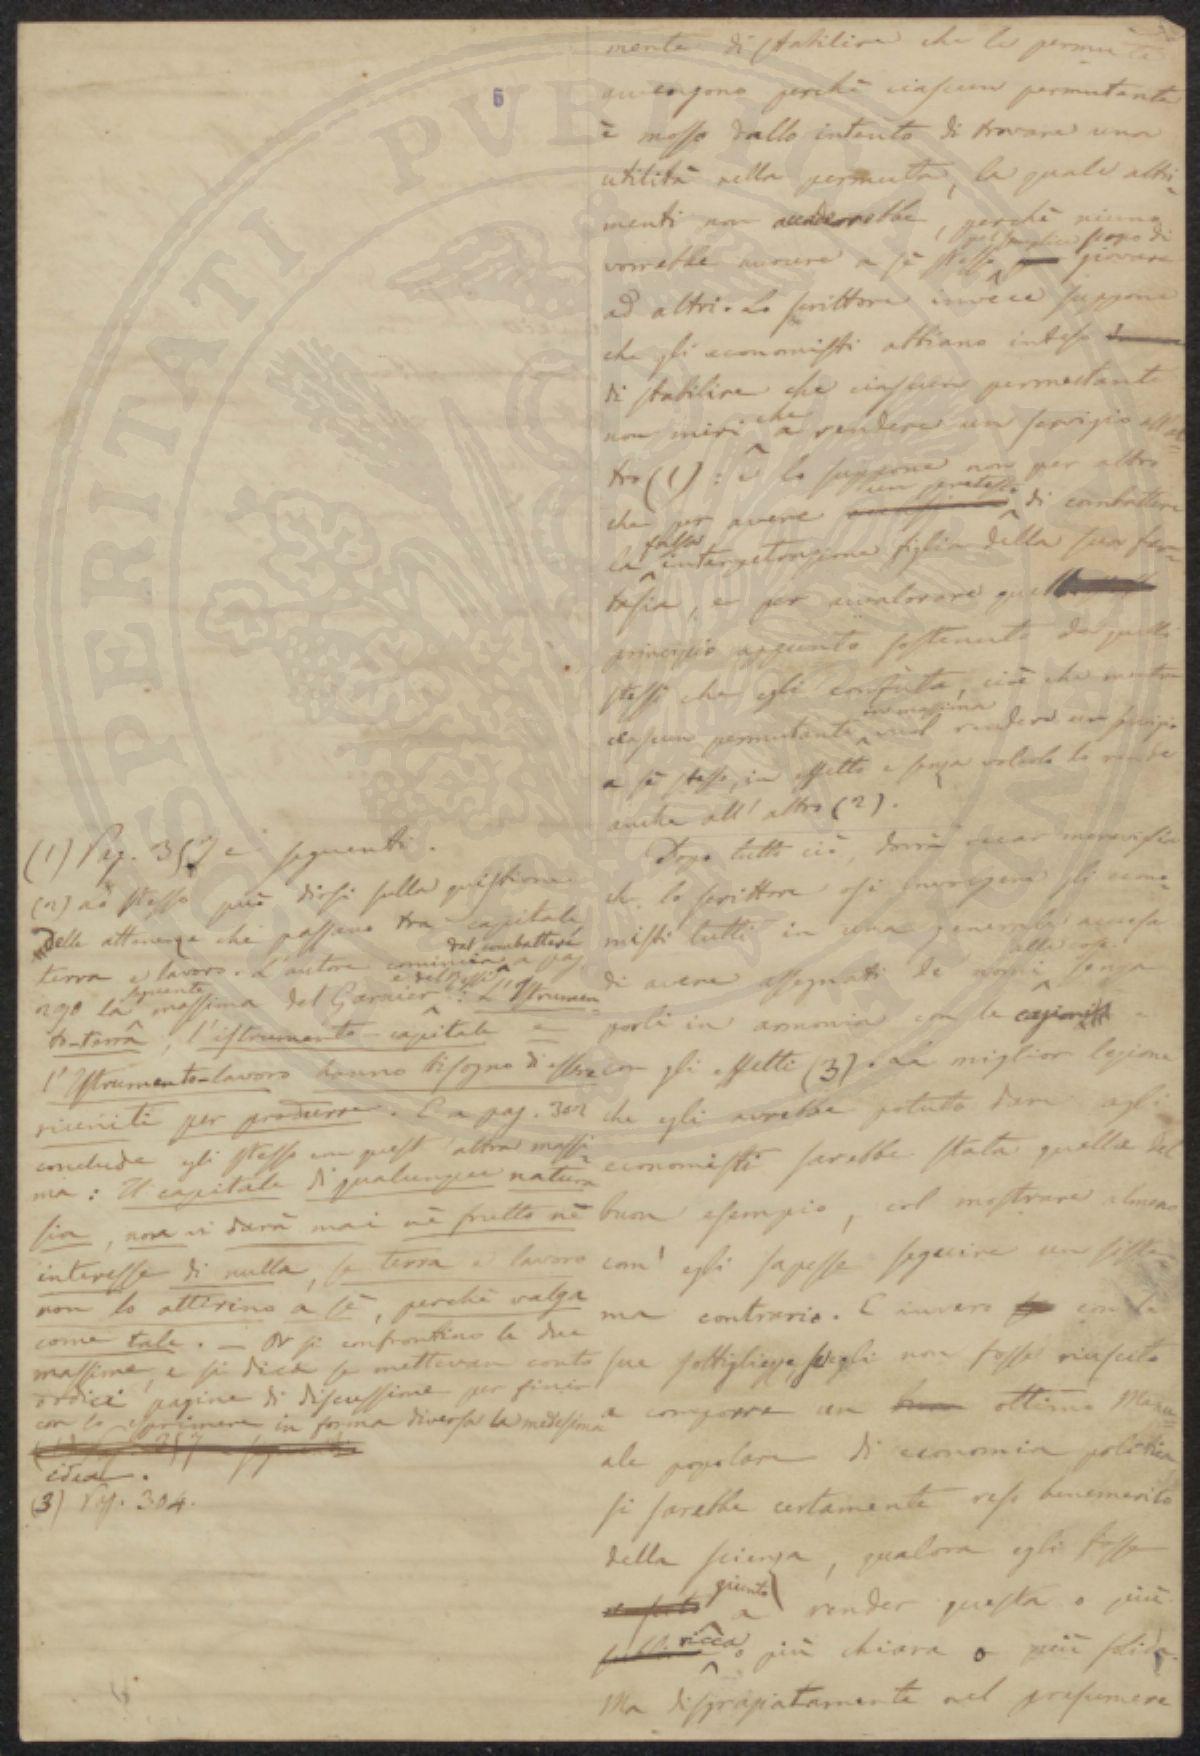 mente di stabilire che le permute
avvengono perchè ciascun permutante
è mosso dallo intento di trovare una
utilità nella permuta, la quale altri-
menti non accaderebbe, perchè niuno
pel semplice scopo di
vorrebbe nuocere a sè stesso giovare
ad altri. Lo scrittore invece suppone
che gli economisti abbiano inteso
di stabilire che ciascun permutante
non miri che a rendere un servigio all'al-
tro (1): e lo suppone non per altro
che per avere un pretesto di combattere
la falsa interpretazione figlia della sua fan-
tasia, e per avvalorare quel
principio appunto sostenuto da quelli
stessi che egli confuta, cioè che mentre
ciascun permutante in massima vuol rendere un servigio
a sè stesso, in effetto e senza volerlo lo rende
anche all'altro (2).
Dopo tutto ciò, dovrà recar meraviglia
che lo scrittore osi involgere gli econo-
misti tutti in una generale accusa
di avere assegnati de' nomi alle cose senza
porli in armonia con le cagioni e
con gli effetti (3). La miglior lezione
che egli avrebbe potuto dare agli
economisti sarebbe stata quella del
buon esempio, col mostrare almeno
com' egli sapesse seguire un siste-
ma contrario. E invero con le
sue sottigliezze s'egli non fosse riuscito
a comporre un ottimo Manu-
ale popolare di economia politica
si sarebbe certamente reso benemerito
della scienza, qualora egli fosse
giunto a render questa o più
ricca o più chiara o più solida.
Ma disgraziatamente nel presumere
(1) Pag. 357 e seguenti.
(2) Lo stesso può dirsi sulla quistione
delle attenenze che passano tra capitale
terra e lavoro. L'autore comincia dal combattere a pag
290 la seguente massima del Garnier e del Rossi: L'Istrumen-
to-terra, l'istrumento-capitale e
l'Istrumento-lavoro hanno bisogno di essere
riuniti per produrre. E a pag. 302
conclude egli stesso con quest'altra massi-
ma: Il capitale di qualunque natura
sia, non vi darà mai nè frutto nè
interesse di nulla, se terra e lavoro
non lo attirino a sè, perchè valga
come tale. — Or si confrontino le due
massime, e si dica se mettevan conto
dodici pagine di discussione per finir
con lo esprimere in forma diversa la medesima
idea.
(3) Pag. 304.